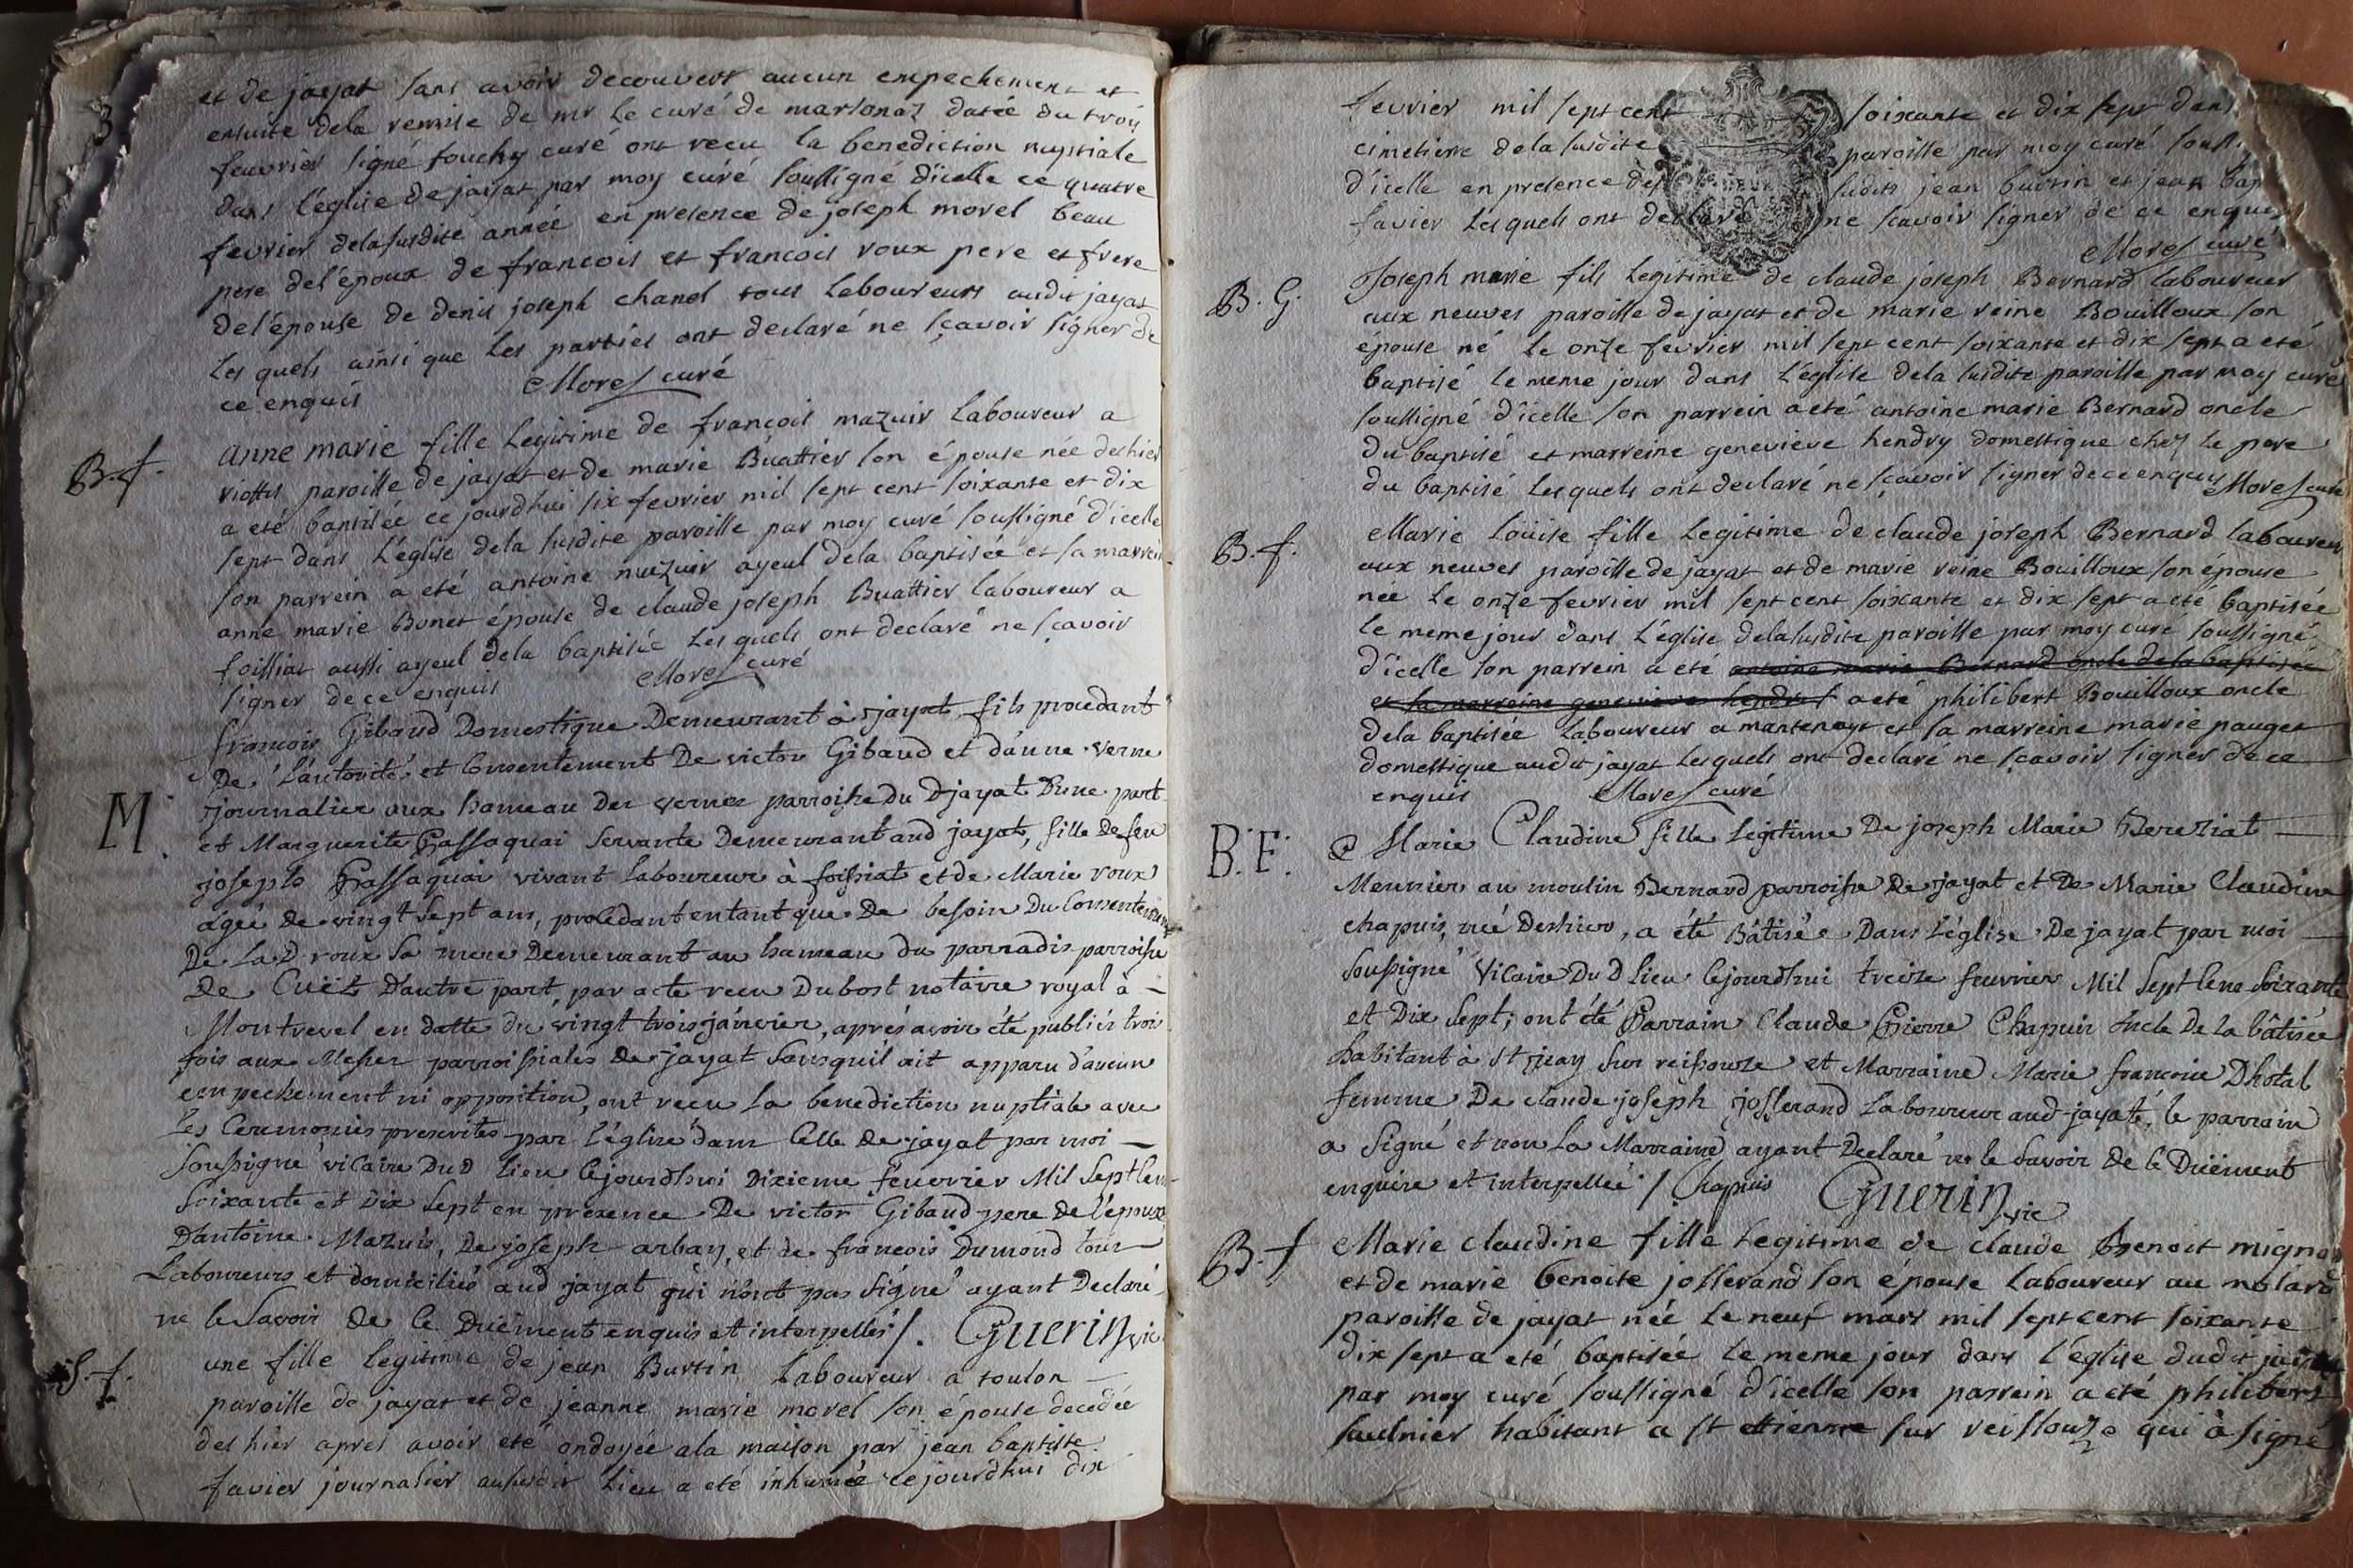 3
et de jayat sans avoir decouvert aucun empechement et
ensuite dela remise de mr le curé de marsonaz datée du trois
feuvrier signé touchy curé ont recu la benediction nuptiale
dans l'église de jayat par moy curé soussigné d'icelle ce quatre
fevrier delasusdite année en presence de joseph morel beau
pere del'époux de francois et francois roux pere et frere
del'épouse de denis joseph chanel tous laboureurs audit jayat
les quels ainsi que les parties ont declaré ne sçavoir signer de
ce enquis Morel curé
B.f. anne marie fille legitime de françois mazuir laboureur a
viottis paroisse de jayat et de marie Buattier son épouse née deshier
a eté baptisée ce jourdhui six fevrier mil sept cent soixante et dix
sept dans l'église dela susdite paroisse par moy curé soussigné d'icelle
son parrein a eté antoine mazuir ayeul dela baptisée et sa marreine
anne marie Bonet épouse de claude joseph Buattier laboureur a
foissiat aussi ayeul dela baptisée les quels ont declaré ne sçavoir
signer de ce enquis Morel curé
M. francois Gibaud Domestique Demeurant à jayat fils procedant
De l'autorité et Consentement De victor Gibaud et d'anne verne
journalier aux hameau Des vernes parroisse Du D jayat D'une part
et Marguerite Passaquai servante Demeurant aud jayat, fille De feu
joseph Passaquai vivant laboureur à foissiat et de Marie roux
agée de vingt sept ans, procedant entant que De besoin Du Consentement
De La D roux sa mere Demeurant au hameau du parradis parroisse
De Cuët D'autre part, par acte recu Dubost notaire royal à
Montrevel en datte du vingt trois janvier, aprés avoir été publiés trois
fois aux Messes parroissiales De jayat sans qu'il ait apparu d'aucun
empechement ni opposition, ont recu la benediction nuptiale avec
les Ceremonies prescrites par l'église dans Celle de jayat par moi
Soussigné vicaire Dud lieu Cejourdhui Dixieme feuvrier Mil Sept Cent
Soixante et Dix Sept en présence De victor Gibaud pere De l'époux
D'antoine Mazuir, De joseph arban, et de francois Dumond tous
Laboureurs et domiciliés aud jayat qui n'ont pas signé ayant Declaré
ne le Savoir De Ce Duëment enquis et interpellés /. Guerin vic
S.f. une fille legitime de jean Burtin laboureur a toulon
paroisse de jayat et de jeanne marie morel son épouse decedée
des hier apres avoir eté ondoyée ala maison par jean baptiste
favier journalier aususdit lieu a eté inhumée cejourdhui dix
fevrier mil sept cent soixante et dix sept dans
cimetierre dela susdite paroisse par moy curé
d'icelle en presence des susdits jean burtin et jean
favier les quels ont declaré ne sçavoir signer de ce enquis
Morel curé
B. G. Joseph marie fils legitime de claude joseph Bernard laboureur
aux neuves paroisse de jayat et de marie reine Bouilloux son
épouse né le onze fevrier mil sept cent soixante et dix sept a eté
baptisé le meme jour dans l'église dela susdite paroisse par moy curé
soussigné d'icelle son parrein a eté antoine marie Bernard oncle
du baptisé et marreine genevieve hendry domestique chez le pere
du baptisé les quels ont declaré ne sçavoir signer de ce enquis Morel curé
B. f. Marie loüise fille legitime de claude joseph Bernard laboureur
aux neuves paroisse de jayat et de marie reine Bouilloux son épouse
née le onze fevrier mil sept cent soixante et dix sept a eté baptisée
le meme jour dans l'église delasusdite paroisse par moy curé soussigné
d'icelle son parrein a eté antoine marie Bernard oncle de la baptisée
et sa marreine genevieve hendry a eté philibert Bouilloux oncle
dela baptisée laboureur a mantenayt et sa marreine marie pauget
domestique audit jayat les quels ont declaré ne sçavoir signer de ce
enquis Morel curé
B. F. Marie Claudine fille legitime De joseph Marie Bereziat
Meunier au moulin Bernard parroisse De jayat et De Marie Claudine
chapuis, née Deshier, a été Bâtisée Dans l'église De jayat par moi
soussigné Vicaire Du D lieu Cejourdhui treize feuvrier Mil Sept Cent Soixante
et Dix Sept; ont été Parrain Claude Pierre Chapuis oncle De la bâtisée
habitant à St juan sur reissouze et Marraine Marie francoise Dhotal
femme De claude joseph josserand laboureur aud jayat, le parrain
a signé et non la Marraine ayant Declaré ne le savoir De Ce Duëment
enquise et interpellée / Chapuis Guerin vic
B. f Marie claudine fille legitime de claude Benoit
et de marie benoite josserand son épouse laboureur au molard
paroisse de jayat née le neuf mars mil sept cent soixante
dix sept a eté baptisée le meme jour dans l'église dudit jayat
par moy curé soussigné d'icelle son parrein a eté philibert
saulnier habitant a st etienne sur reissouze qui à signé